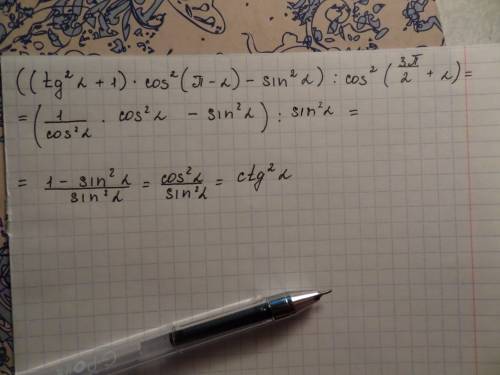 ((tg²α + 1) · cos²(π - α) - sin²α) : cos²(3π/2 + α) =
= (1/cos²α · cos²α - sin²α) : sin²α =
= (1 - sin²α)/(sin²α) = cos²α/sin²α = ctg²α